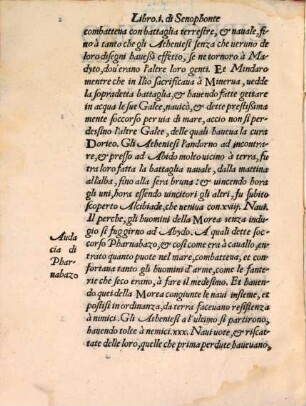 Libro.I. di Senophonte
combatteua con battaglia terrestre, & nauale, fino
à tanto che gli Atheniesi senza che veruno de
loro disegni hauesse effetto, se ne tornoro à Ma-
dyto, dou'erano l'altre loro genti. Et Mindaro
mentre che in Ilio sacrificaua à Minerua, uedde
la sopradetta battaglia, & hauendo fatte gettare
in acqua le sue Galee, nauicò, & dette prestissima-
mente soccorso per uia di mare, accio non si per-
desino l'altre Galee, delle quali haueua la cura
Dorieo. Gli Atheniesi l'andorno ad incontra-
re, & presso ad Abido molto uicino à terra, fu
tra loro fatta la battaglia nauale, dalla mattina
all'alba, fino alla sera bruna: & uincendo hora
gli uni, hora essendo uincitori gli altri, fu subito
scoperto Alcibiade, che ueniua con .xviij. Naui.
Il perche, gli huomini della Morea senza indu-
gio si fuggirno ad Abydo. A quali dette soc-
Auda
cia di
Phar-
nabazo
corso Pharnabazo, & cosi come era à cauallo, en-
trato quanto puote nel mare, combatteua, et con-
fortaua tanto gli huomini d'arme, come le fante-
rie che seco erano, à fare il medesimo. Et hauen-
do quei della Morea congiunte le naui insieme, et
postisi in ordinanza, da terra faceuano resistenza
à nimici. Gli Atheniesi a l'ultimo si partirono,
hauendo tolte à nemici .xxx. Naui uote, & riscat-
tate delle loro, quelle che prima perdute haueuano,